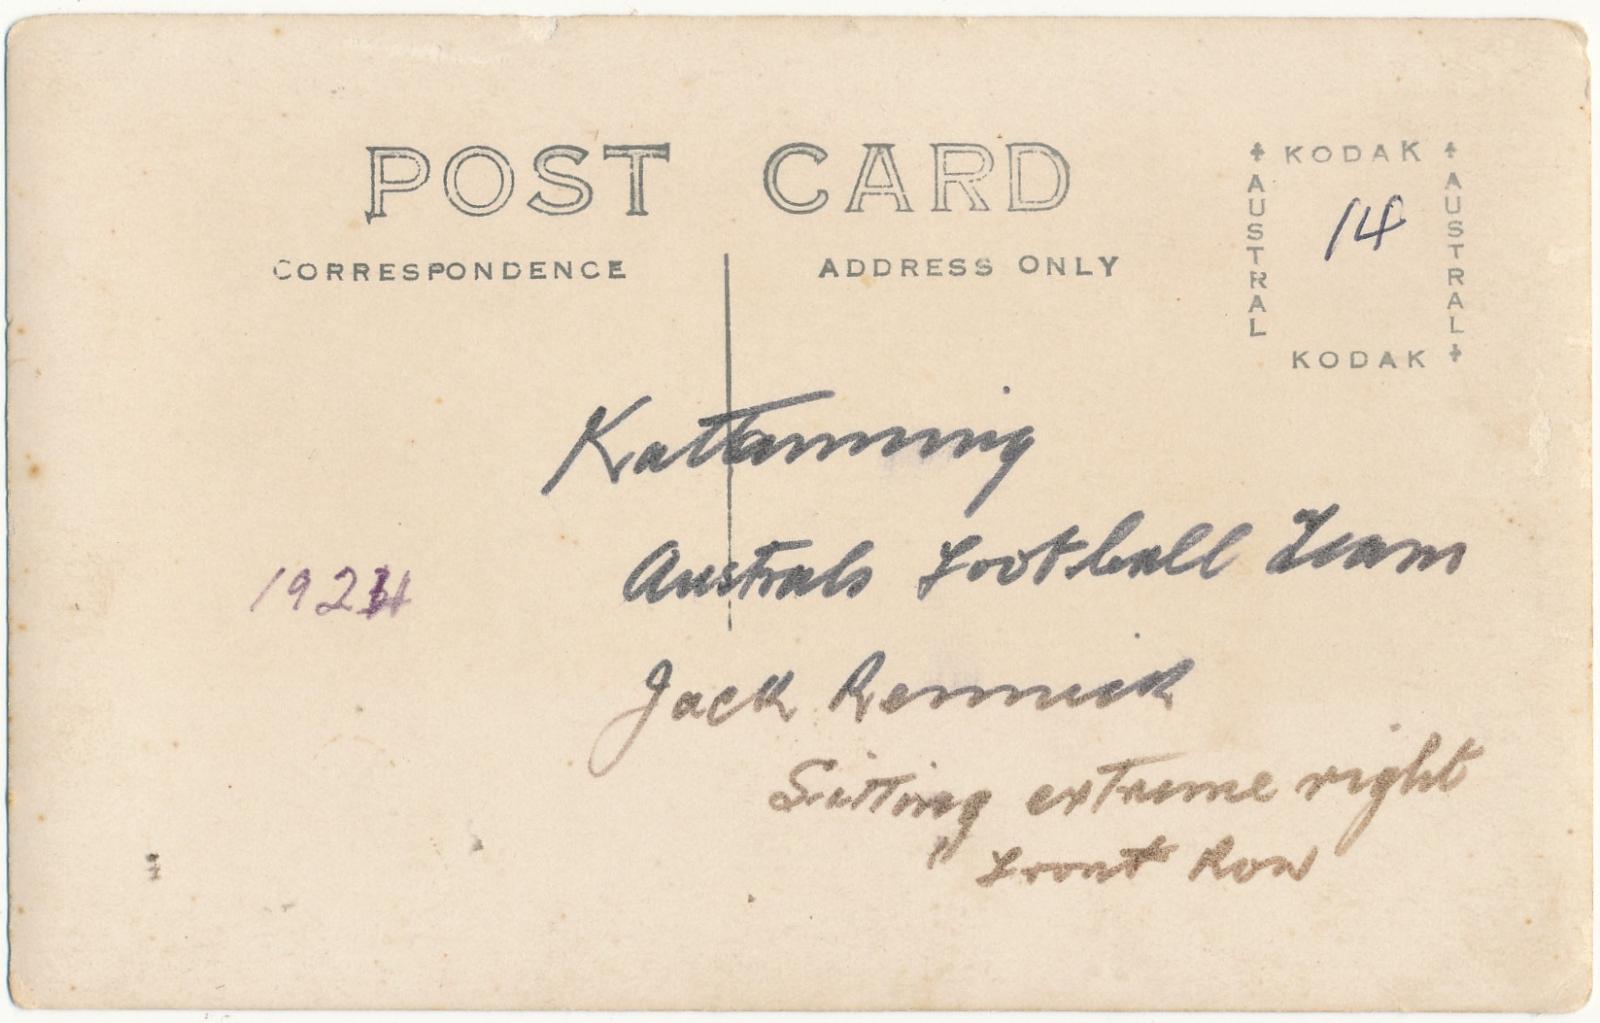 POST CARD
CORRESPONDENCE
ADDRESS ONLY
KODAK
AUSTRAL
AUSTRAL
KODAK
14
Katanning
Australs Football Team
1924
Jack Rennick
Sitting extreme right
" Front Row